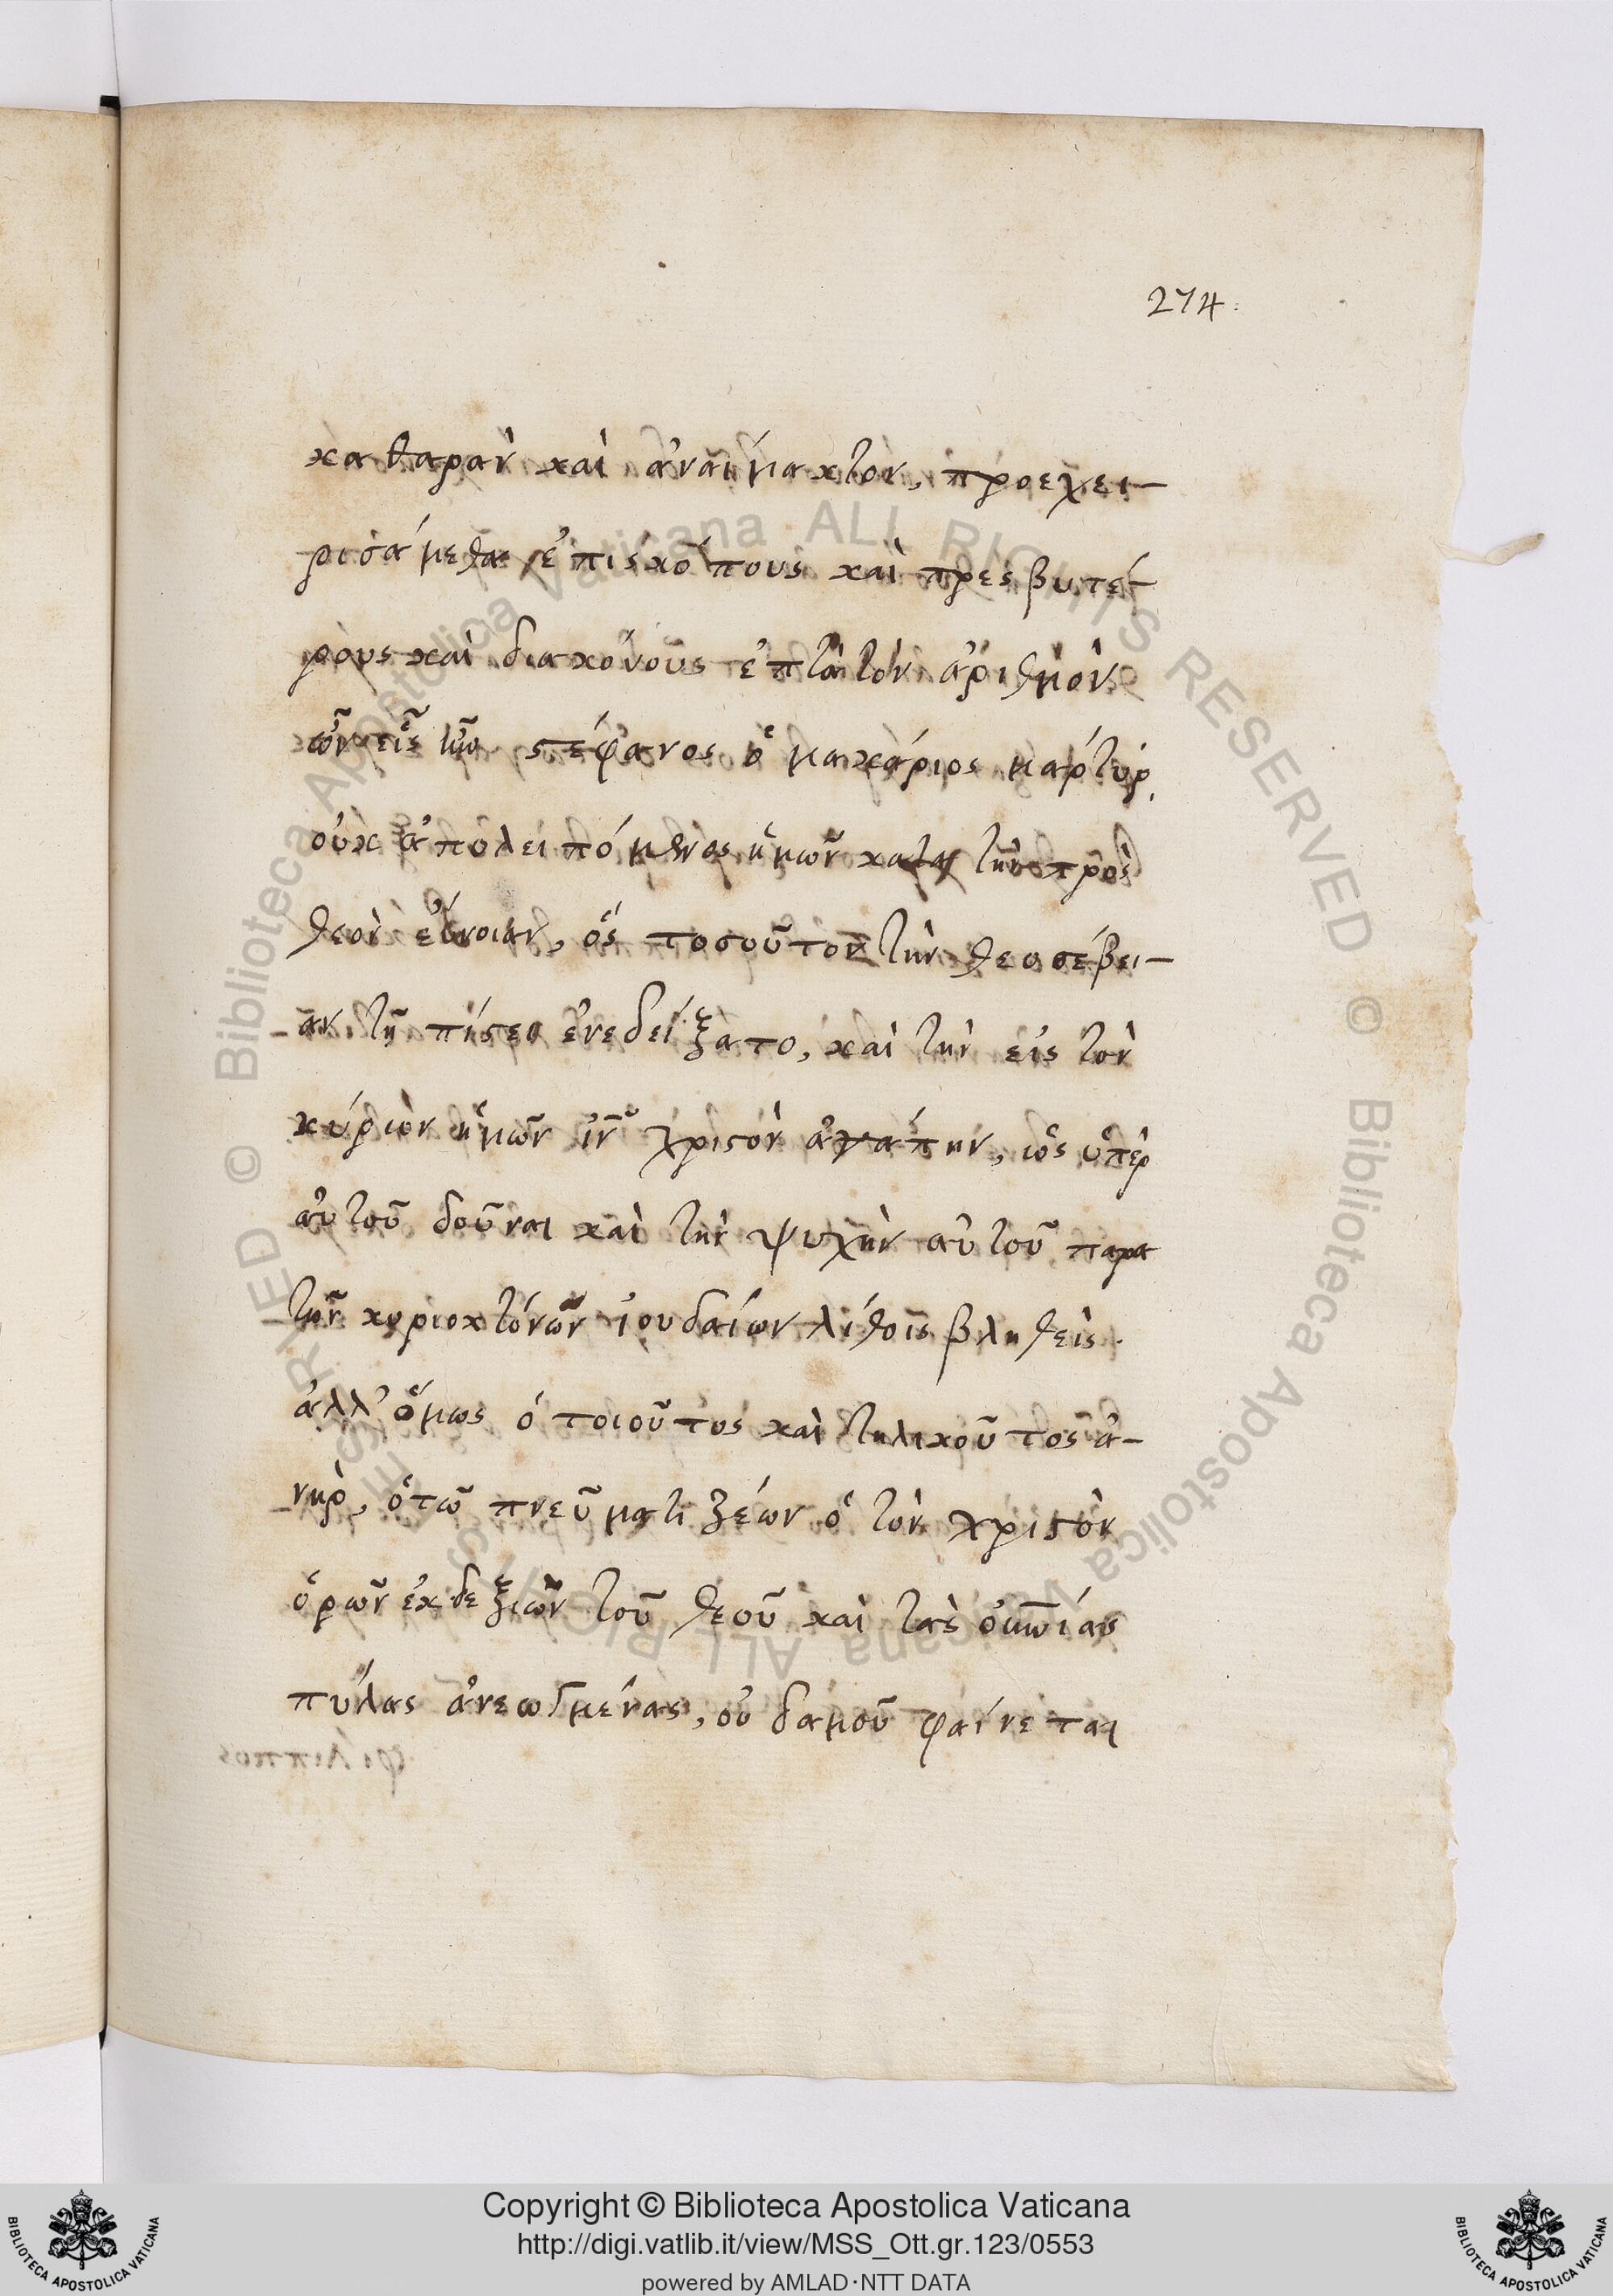 274.
καθαρὰν καὶ ἀναίμακτον, προεχει-
ρισάμεθα ἐπισκόπους καὶ πρεσβυτέ-
ρους καὶ διακόνους ἑπτὰ τὸν ἀριθμὸν
ὧν εἷς ἦν στέφανος ὁ μακάριος μάρτυρ,
οὐκ ἀπολειπόμενος ἡμῶν κατὰ τὴν πρὸς
θεὸν εὔνοιαν, ὃς τοσοῦτον τὴν θεοσέβει-
αν τῇ πίστει ἐνεδείξατο, καὶ τὴν εἰς τὸν
κύριον ἡμῶν ἰν̅ χριστὸν ἀγάπην, ὡς ὑπὲρ
αὐτοῦ δοῦναι καὶ τὴν ψυχὴν αὐτοῦ παρα
τῶν κυριοκτόνων ἰουδαίων λίθοις βληθείς.
ἀλλ' ὅμως ὁ τοιοῦτος καὶ τηλικοῦτος ἀ-
νὴρ, ὁ τῶ πνεύματι ζέων ὁ τὸν χριστὸν
ὁρῶν ἐκ δεξιῶν τοῦ θεοῦ καὶ τὰς οὐνίας
πύλας ἀνεωγμένας, οὐδαμοῦ φαίνεται
φίλιππος
Copyright © Biblioteca Apostolica Vaticana
http://digi.vatlib.it/view/MSS_Ott.gr.123/0553
powered by AMLAD·NTT DATA
BIBLIOTECA APOSTOLICA VATICANA
BIBLIOTECA APOSTOLICA VATICANA
© Biblioteca Apostolica Vaticana ALL RIGHTS RESERVED © Biblioteca Apostolica Vaticana ALL RIGHTS RESERVED